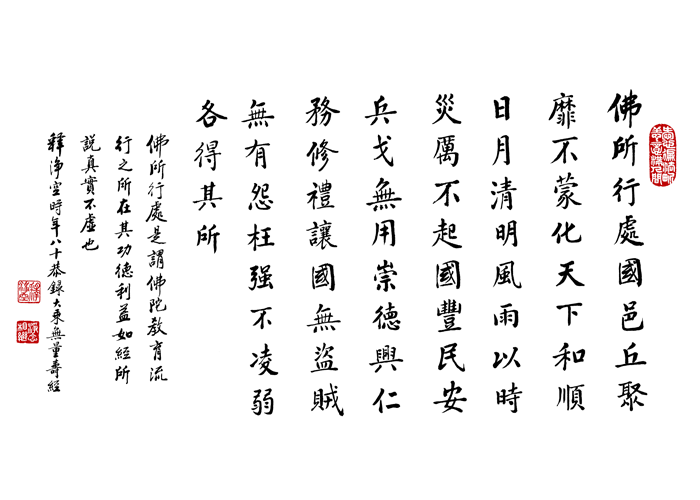 佛所行處國邑丘聚
靡不蒙化天下和順
日月清明風雨以時
災厲不起國豐民安
兵戈無用崇德興仁
務修禮讓國無盜賊
無有怨枉强不凌弱
各得其所
佛所行處是謂佛陀教育流
行之所在其功德利益如經所
説真實不虛也
釋淨空時年八十恭錄大乘無量壽經